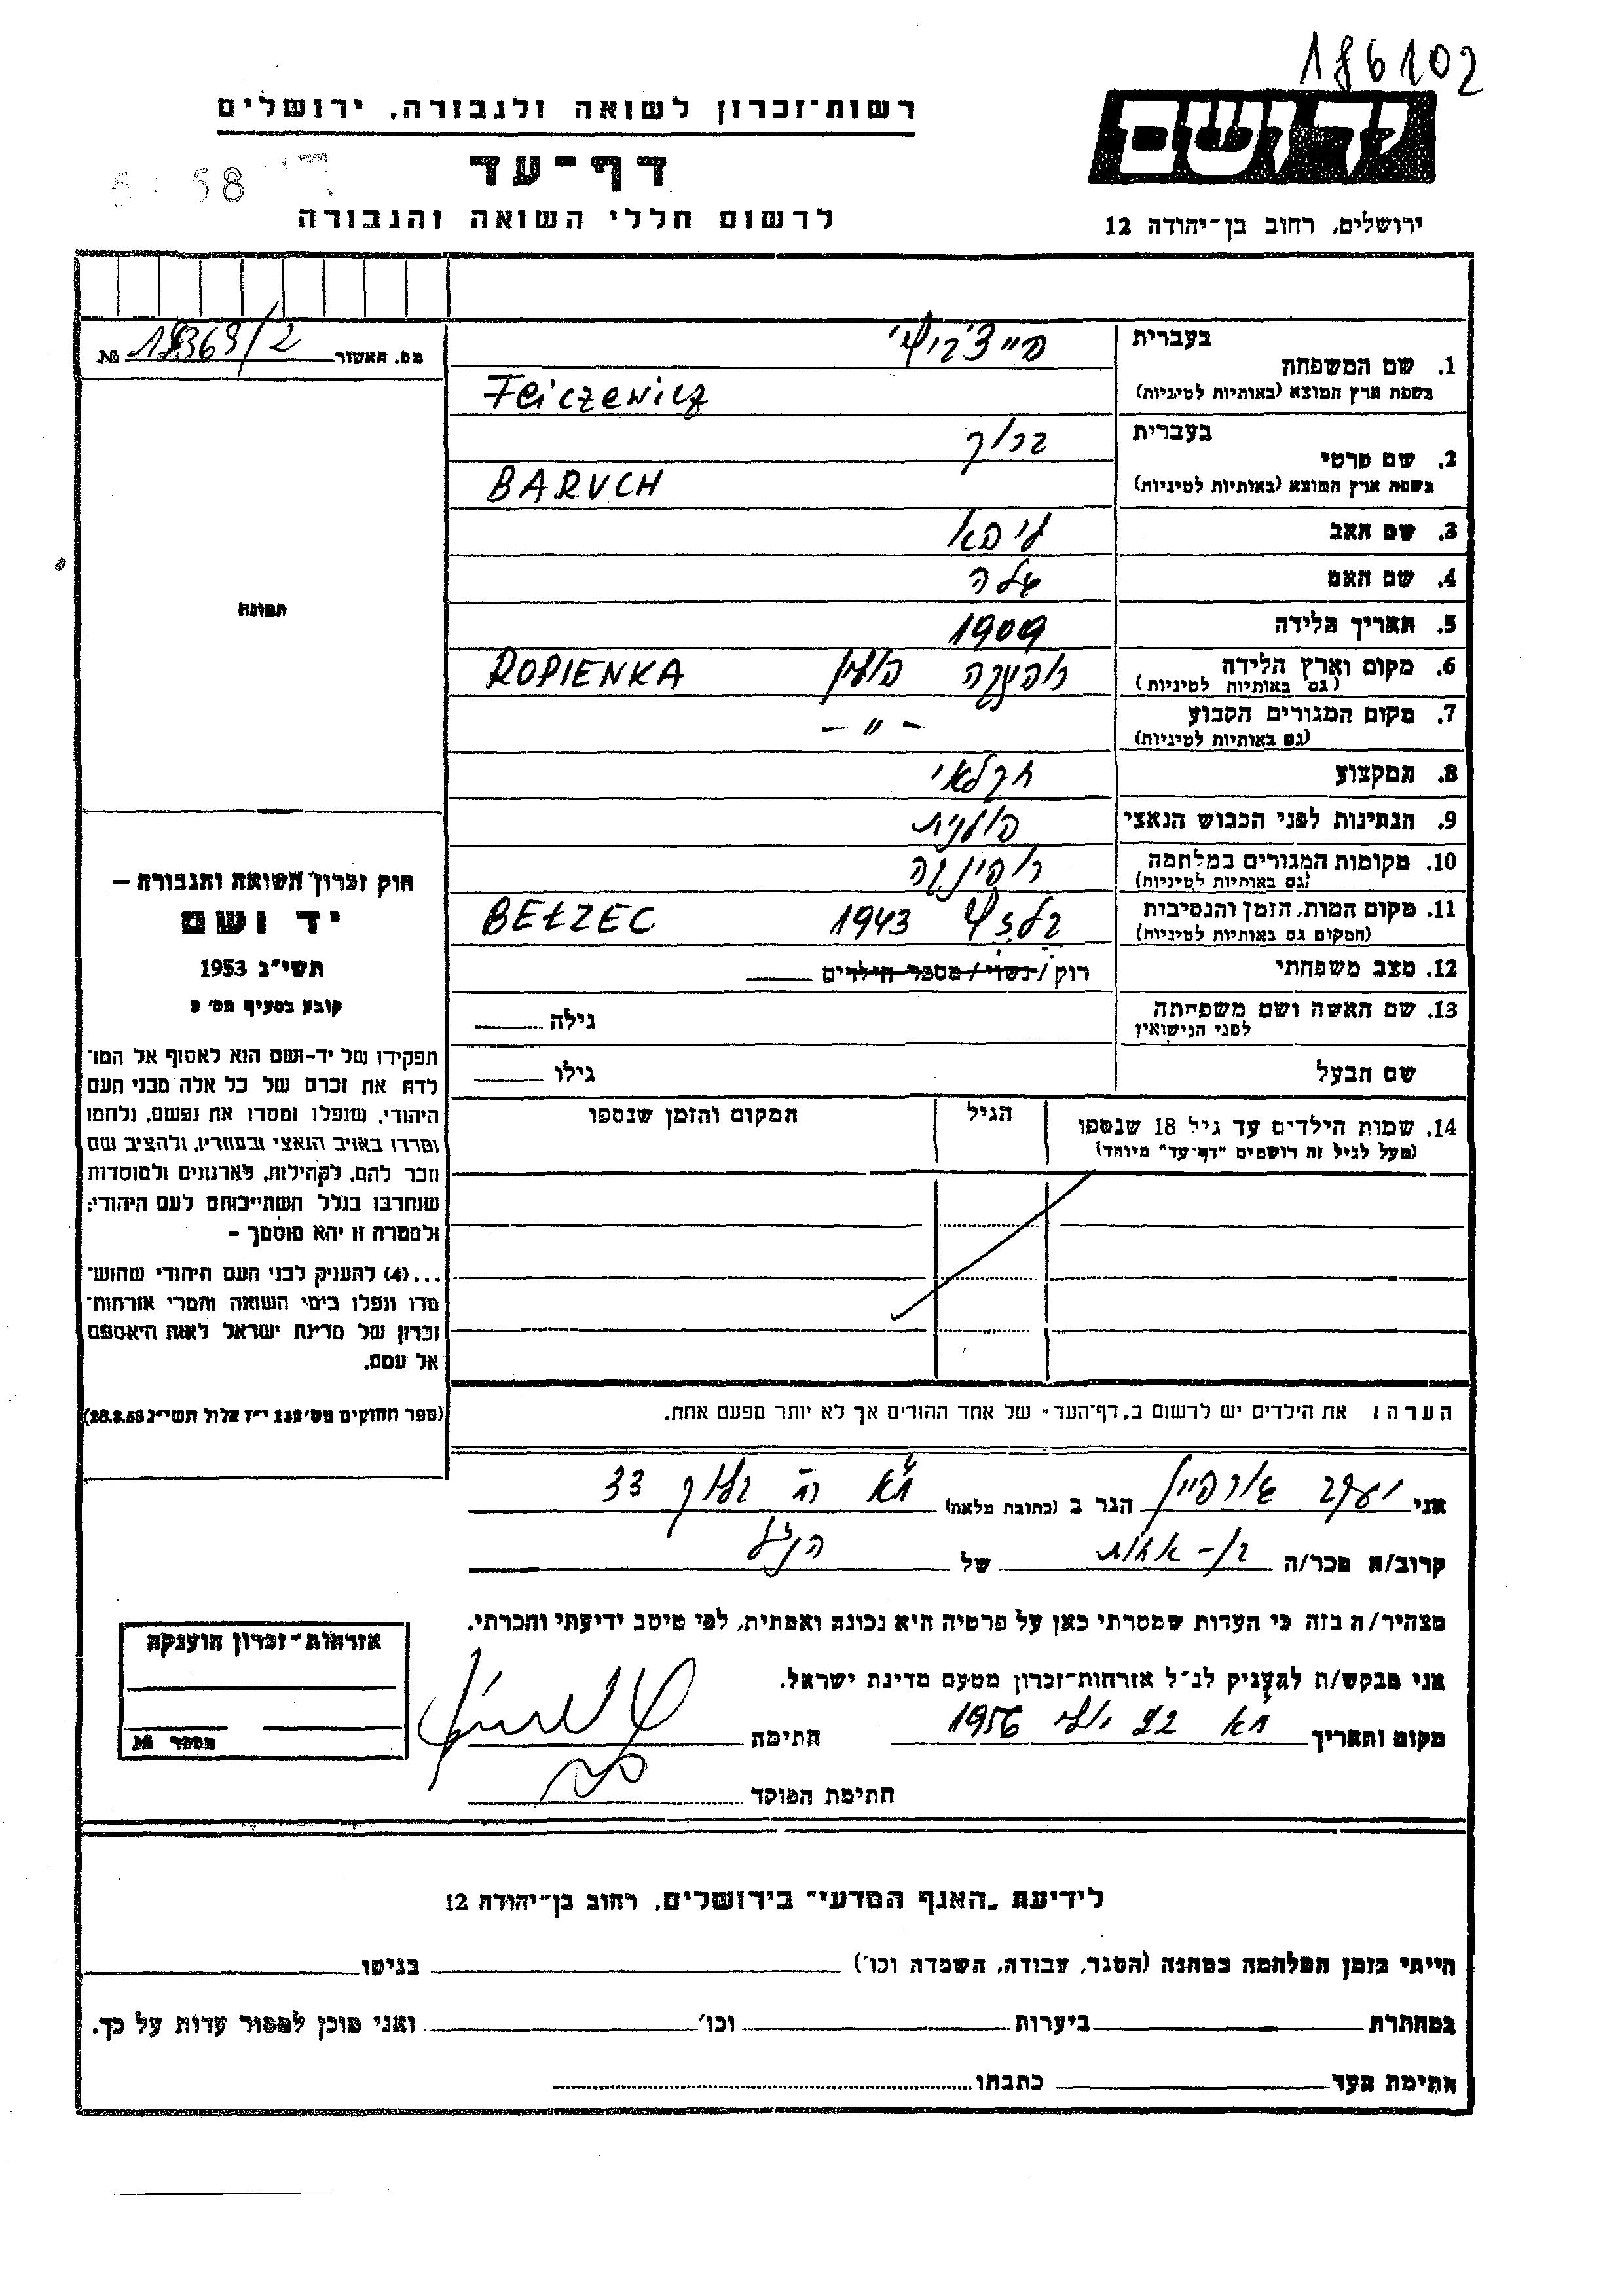 186102
רשות־זכרון לשואה ולגבורה, ירושלים
יד ושם
דף־עד
58
לרשום חללי השואה והגבורה
ירושלים, רחוב בן־יהודה 12
מס. האשור № 18369/2
בעברית
1. שם המשפחה
בשפת ארץ המוצא (באותיות לטיניות) Feiczewicz
2. שם פרטי
בעברית ברוך
בשפת ארץ המוצא (באותיות לטיניות) BARUCH
3. שם האב ליפא
4. שם האם שלה
5. תאריך הלידה 1909
6. מקום וארץ הלידה פולין ROPIENKA
(גם באותיות לטיניות)
7. מקום המגורים הקבוע – " –
(גם באותיות לטיניות)
8. המקצוע חקלאי
9. הנתינות לפני הכבוש הנאצי פולנית
10. מקומות המגורים במלחמה
(גם באותיות לטיניות)
11. מקום המות, הזמן והנסיבות 1943 BEŁZEC
(המקום גם באותיות לטיניות)
12. מצב משפחתי רווק / נשוי / מספר הילדים
13. שם האשה ושם משפחתה גילה
לפני הנישואין
שם הבעל גילו
14. שמות הילדים עד גיל 18 שנספו הגיל המקום והזמן שנספו
(מעל לגיל זה רושמים "דף־עד" מיוחד)
הערה: את הילדים יש לרשום ב„דף־העד" של אחד ההורים אך לא יותר מפעם אחת.
תמונה
חוק זכרון השואה והגבורה –
יד ושם
תשי"ג 1953
קובע בסעיף מס' 2
תפקידו של יד־ושם הוא לאסוף אל המו־
לדת את זכרם של כל אלה מבני העם
היהודי, שנפלו ומסרו את נפשם, נלחמו
ומרדו באויב הנאצי ובעוזריו, ולהציב שם
וזכר להם, לקהילות, לארגונים ולמוסדות
שנחרבו בגלל השתייכותם לעם היהודי;
ולמטרה זו יהא מוסמך –
...(4) להעניק לבני העם היהודי שהוש־
מדו ונפלו בימי השואה והמרי אזרחות־
זכרון של מדינת ישראל לאות היאספם
אל עמם.
(ספר החוקים מס' 132 י"ז אלול תשי"ג 28.8.53)
אני יעקב הגר ב (כתובת מלאה) 33
קרוב/ה מכר/ה בן-אחות של הנ"ל
מצהיר/ה בזה כי העדות שמסרתי כאן על פרטיה היא נכונה ואמתית, לפי מיטב ידיעתי והכרתי.
אני מבקש/ת להעניק לנ"ל אזרחות־זכרון מטעם מדינת ישראל.
מקום ותאריך ת"א 1956 חתימה
חתימת הפוקד
אזרחות־זכרון הוענקה
מספר №
לידיעת „האגף המדעי" בירושלים, רחוב בן־יהודה 12
הייתי בזמן המלחמה במחנה (הסגר, עבודה, השמדה וכו') בגיטו
במחתרת ביערות וכו' ואני מוכן למסור עדות על כך.
חתימת העד כתבתו